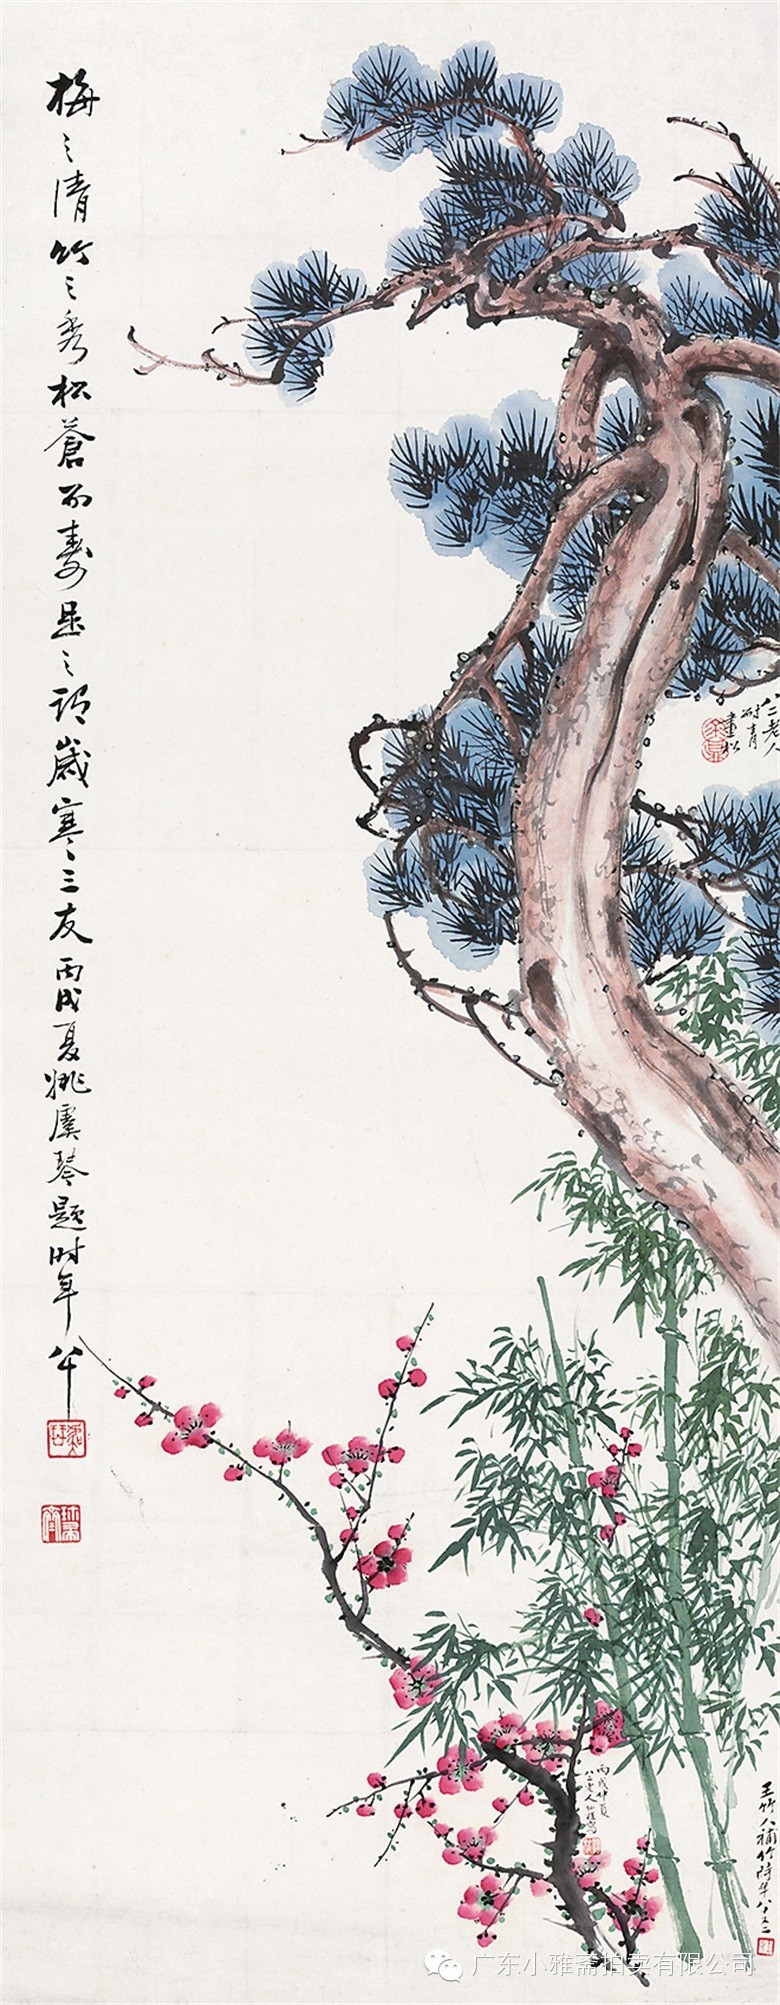 梅之清竹之秀松蒼而壽是之謂歲寒三友丙戌夏姚虞琴題時年八十
八二老人
耐青
畫松
丙戌仲夏
八二老人
王竹人補竹時年八十又二
广东小雅斋拍卖有限公司